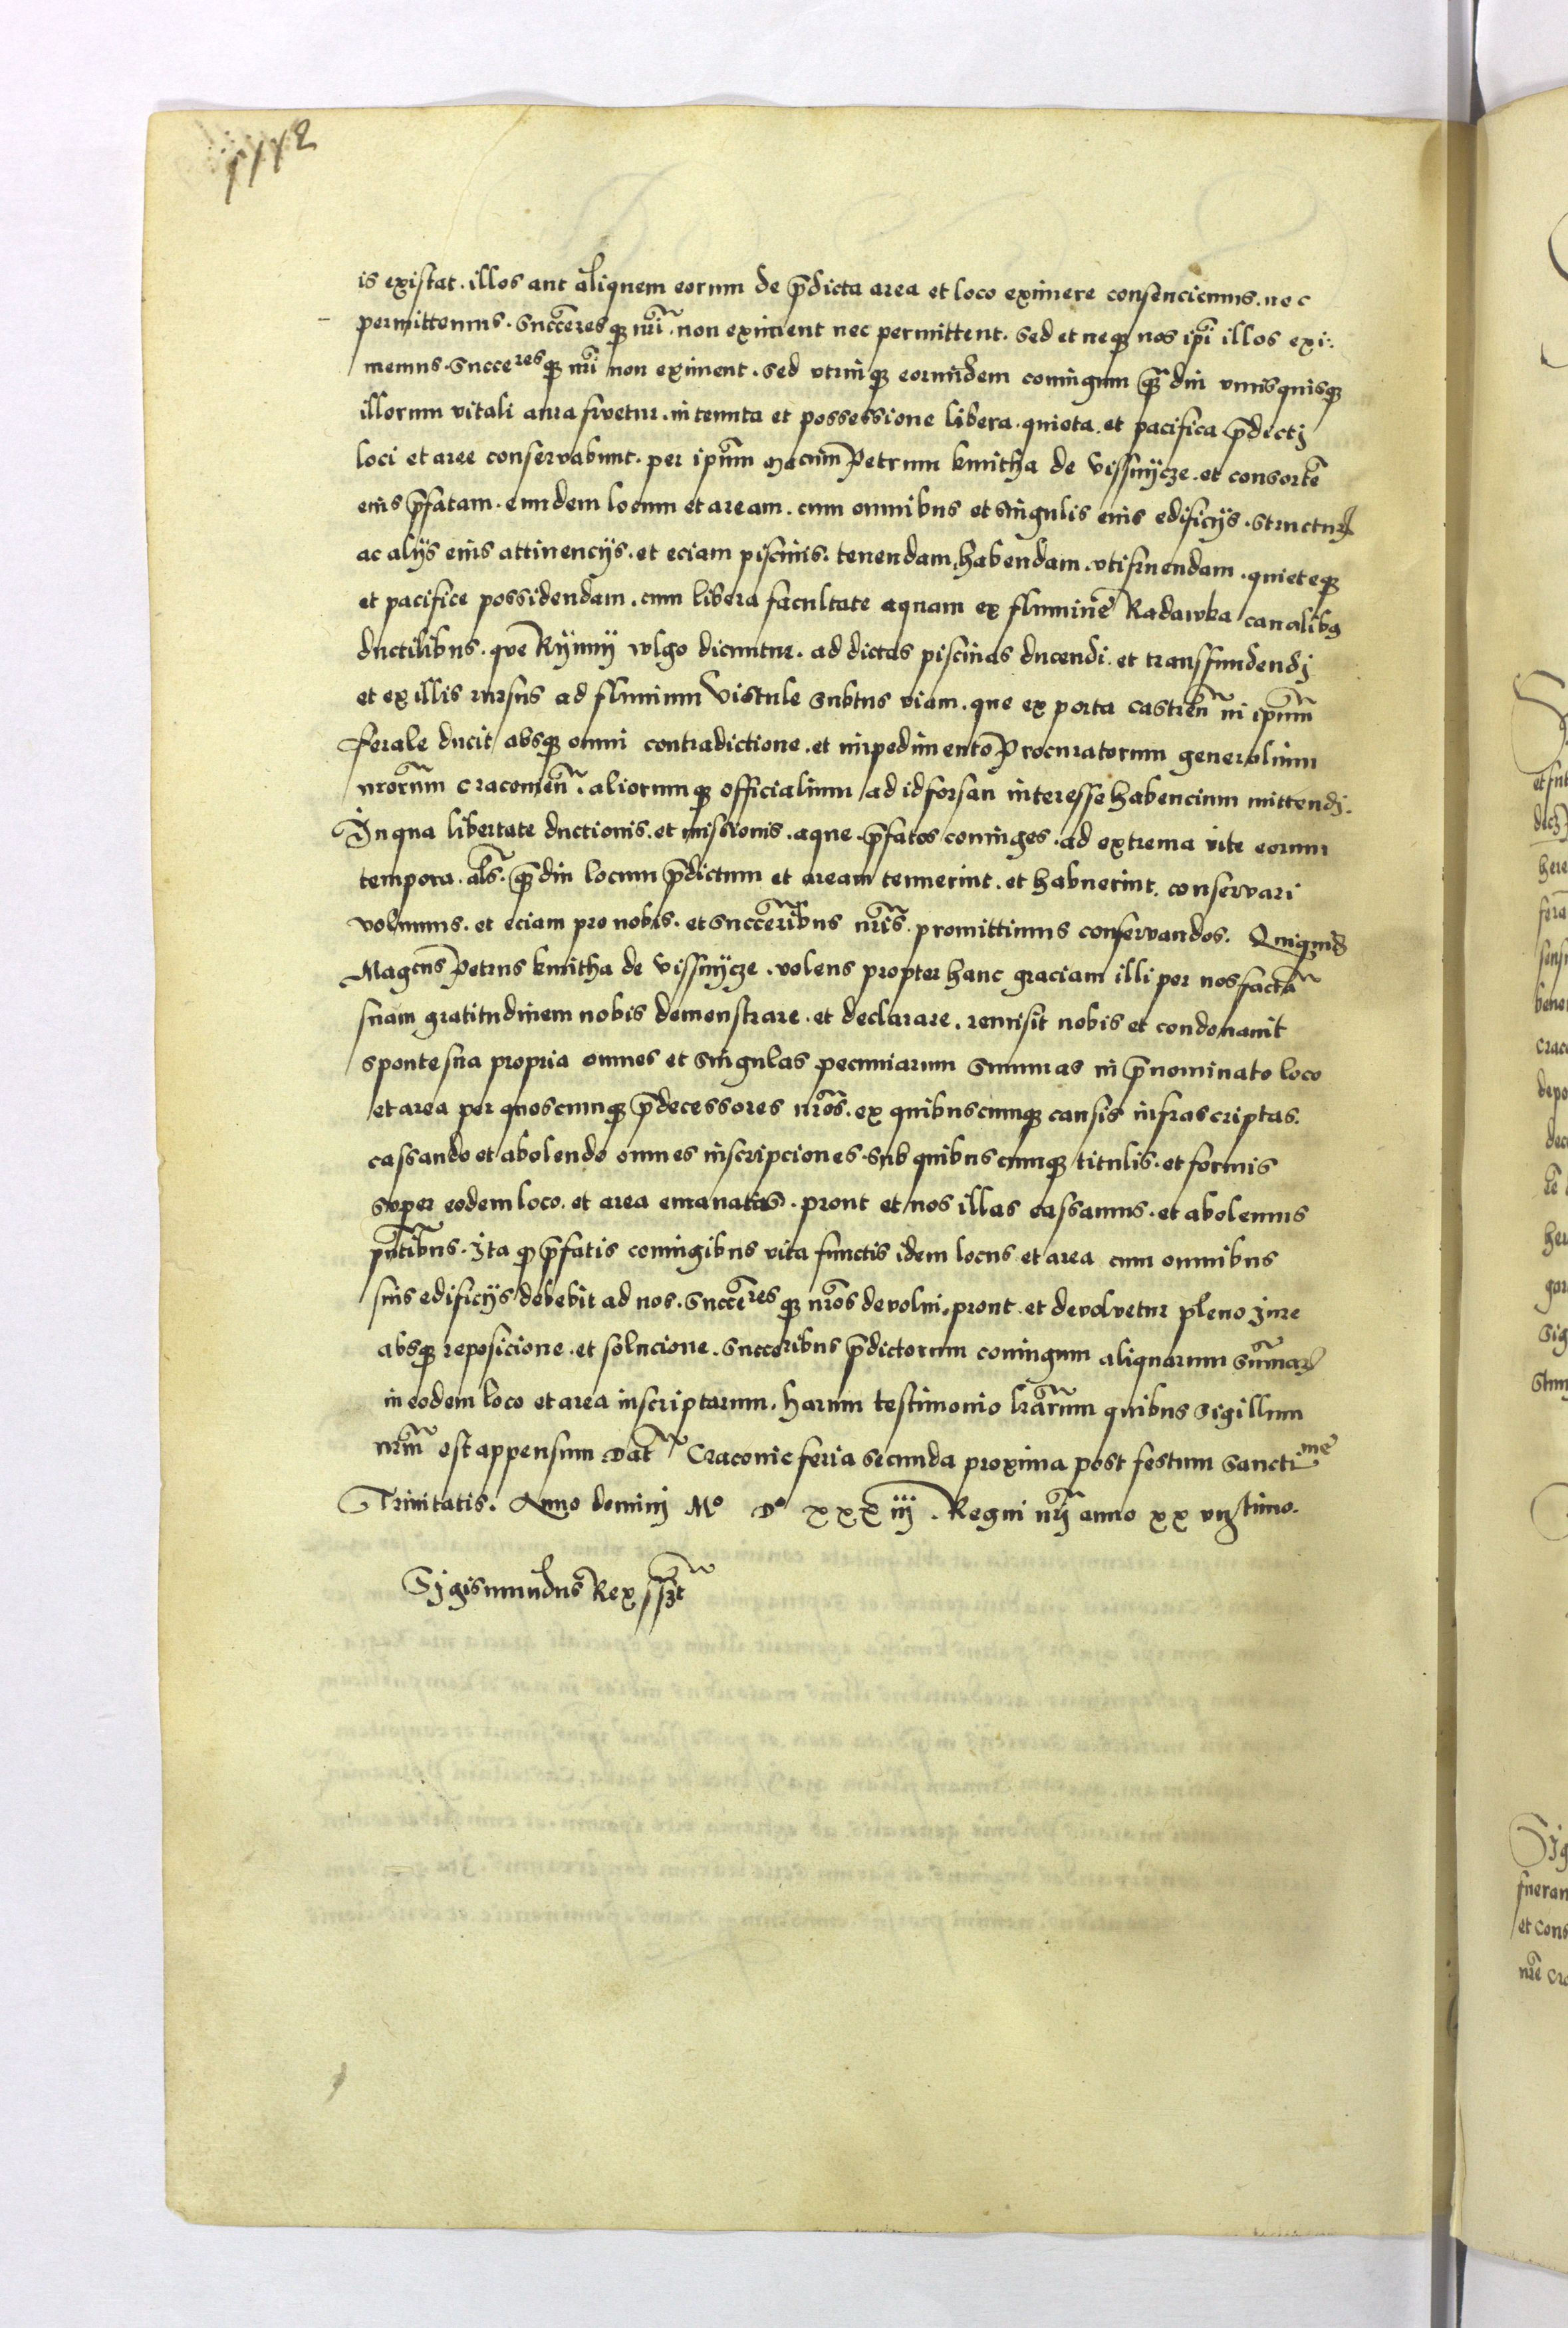 is existat. illos aut aliquem eorum de p̄dicta area et loco eximere consenciemus. nec
permittemus. Succēresq; nr̄i. non eximent nec permittent. Sed et neq; nos ip̄i illos exi:
memus. Succeresq; nr̄i non eximent. Sed utrinq; eorundem coniugum q̄ diu unusquisq;
illorum vitali aura fruetur. in tenuta et possessione libera. quieta. et pacifica p̄decti
loci et aree conservabunt. per ipūm Magcūm Petrum kmitha de Vissnijcze. et consortē
eius p̄fatam. eundem locum et aream. cum omnibus et singulis eius edificijs. Structur
ac alijs eius attinencijs. et eciam piscinis. tenendam, habendam. utifruendam. quieteq;
et pacifice possidendam. cum libera facultate aquam ex flumine Radawka canalib9
ductilibus. que Rijnnij vlgo dicuntur. ad dictas piscinas ducendi. et transfundendi
et ex illis rursus ad fluuium Vistule subtus viam. que ex porta castren̄ in ipsum
ferale ducit absq; omni contradictione. et impedimento Procuratorum generalium
nrōrum Cracouien̄. aliorumq; officialium ad id forsan interesse habencium mittendi.
In qua libertate ductionis. et missionis. aque. p̄fatos coniuges. ad extrema vite eorum
tempora. al̄s. q̄ diu locum p̄dictum et aream tenuerint. et habuerint. conservari
volumus. et eciam pro nobis. et succēribus nrīs. promittimus conservandos. Quiquid
Magcūs Petrus kmitha de Vissnijcze. volens propter hanc graciam illi per nos factā
suam gratitudinem nobis demonstrare. et declarare. remisit nobis et condonauit
sponte sua propria omnes et singulas pecuniarum summas in p̄nominato loco
et area per quoscunq; p̄decessores nrōs. ex quibuscunq; causis infrascriptas.
cassando et abolendo omnes inscripciones. Sub quibuscunq; titulis. et formis
super eodem loco. et area emanatas. prout et nos illas cassamus. et abolemus
pn̄tibus. Ita q; p̄fatis coniugibus vita functis idem locus et area cum omnibus
suis edificijs debebit ad nos. Succēresq; nrōs devolui. prout. et devolvetur pleno Jure
absq; reposicione. et solucione. Succēribus p̄dictorum coniugum aliquarum Sum̄ar
in eodem loco et area inscriptarum. harum testimonio lrārum quibus Sigillum
nrūm est appensum. Dat̄ Cracouie feria secunda proxima post festum Sanctime
Trinitatis. Anno domini Mo Do xxx iij. Regni nrī anno xx vijtimo.
Sigismundus Rex sszt